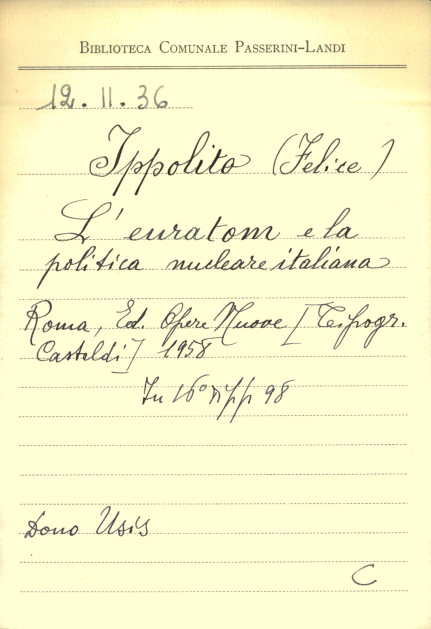 BIBLIOTECA COMUNALE PASSERINI-LANDI
12. II. 36
Ippolito (Felice)
L'euratom e la
politica nucleare italiana
Roma, Ed. Opere Nuove [Tipogr.
Castaldi] 1958
In 16° pp 98
Dono Usis
C